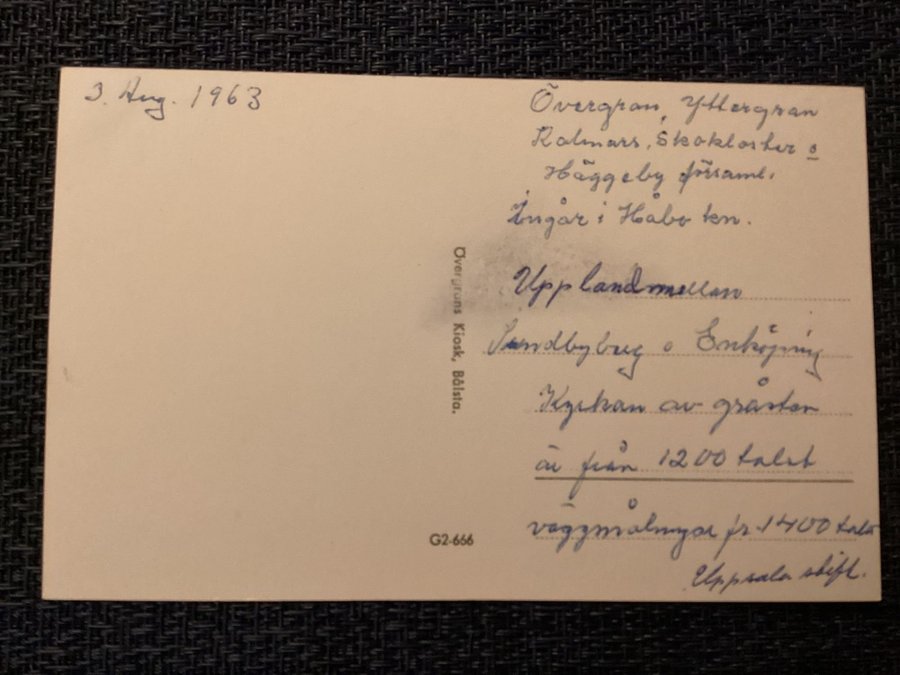 3. Aug. 1963
Övergran, Yttergran
Kalmars, Skokloster o
Häggeby församl.
Ingår i Håbo kn.
Uppland mellan
Sundbyberg o Enköping
Kyrkan av gråsten
är från 1200 talet
väggmålningar fr. 1400 talet
Uppsala stift.
Övergrans Kiosk, Bålsta.
G2-666